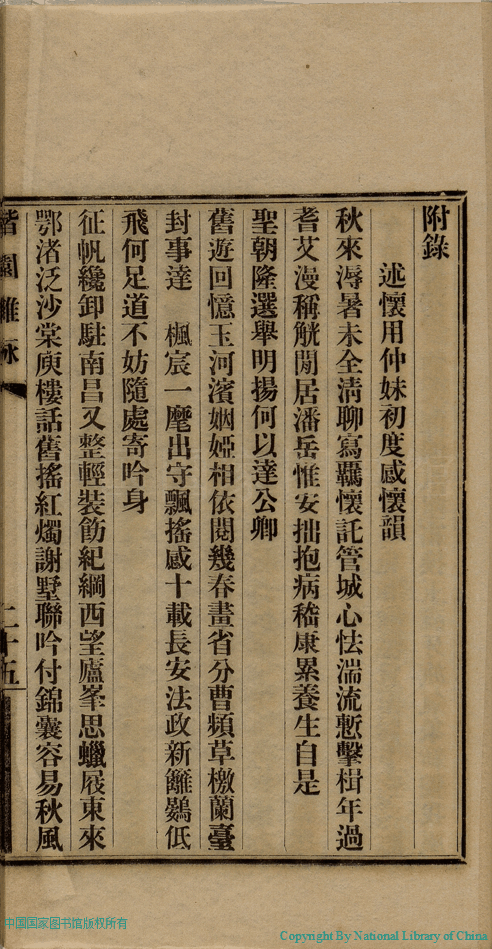 附錄
述懷用仲妹初度感懷韻
秋來溽暑未全淸聊寫羈懷託管城心怯湍流慙擊楫年過
耆艾漫稱觥閒居潘岳惟安拙抱病嵇康累養生自是
聖朝隆選舉明揚何以達公卿
舊遊回憶玉河濱姻婭相依閱幾春畫省分曹頻草檄蘭臺
封事達 楓宸一麾出守飄搖感十載長安法政新籬鷃低
飛何足道不妨隨處寄吟身
征帆纔卸駐南昌又整輕裝飭紀綱西望廬峯思蠟屐東來
鄂渚泛沙棠庾樓話舊搖紅燭謝墅聯吟付錦囊容易秋風
偕園雜咏
二十五
中国国家图书馆版权所有
Copyright By National Library of China